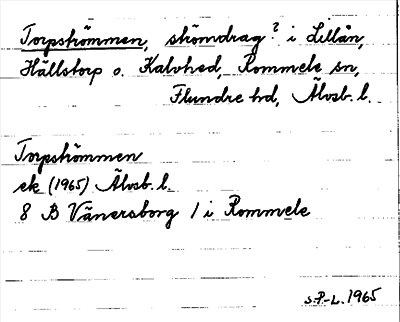 Torpströmmen, strömdrag? i Lillån,
Hällstorp o. Kalvhed, Rommele sn,
Flundre hd, Älvsb. l.
Torpströmmen
ek (1965) Älvsb. l.
8 B Vänersborg 1 i Rommele
S.P.-L. 1965